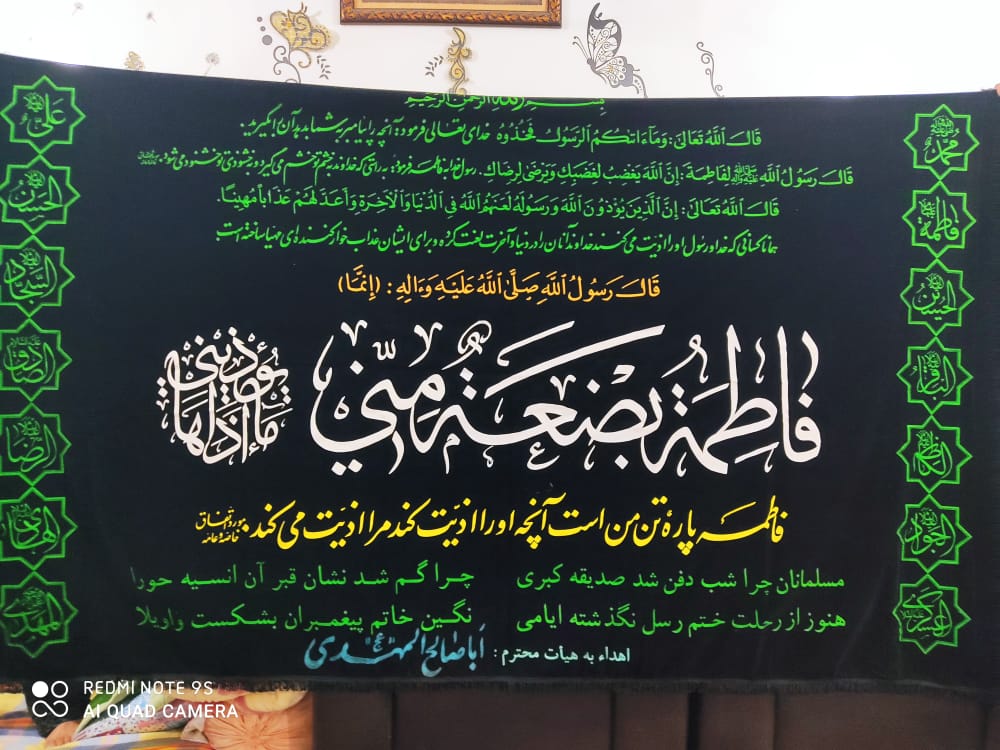 بسم الله الرحمن الرحیم
قال الله تعالی: وما ءاتکم الرسول فخذوه خدای تعالی فرموده: آنچه را پیامبر بشما بدهد آن را بگیرید.
قال رسول الله ﷺ لفاطمة: إن الله یغضب لغضبك ویرضی لرضاك. رسول خدا به فاطمه فرمود: به راستی که خداوند بخشم تو خشم می گیرد و بخشنودی تو خشنود می شود.
قال الله تعالی: إن الذین یؤذون الله ورسوله لعنهم الله فی الدنیا والآخرة وأعد لهم عذابا مهینا.
همانا کسانی که خدا و رسول او را اذیت می کنند خداوند آنان را در دنیا و آخرت لعنت کرده و برای ایشان عذاب خوار کننده ای مهیا ساخته است
قال رسول الله صلی الله علیه وءاله: (إنما)
فاطمة بضعة منی یؤذینی ما آذاها
فاطمه پاره تن من است آنچه او را اذیت کند مرا اذیت می کند. مورد اتفاق خاصه و عامه
مسلمانان چرا شب دفن شد صدیقه کبری چرا گم شد نشان قبر آن انسیه حورا
هنوز از رحلت ختم رسل نگذشته ایامی نگین خاتم پیغمبران بشکست واویلا
اهداء به هیات محترم: اباصالح المهدی
محمد
فاطمة
الحسین
الباقر
الکاظم
الجواد
العسکری
علی
الحسن
السجاد
الصادق
الرضا
الهادی
المهدی
REDMI NOTE 9S
AI QUAD CAMERA